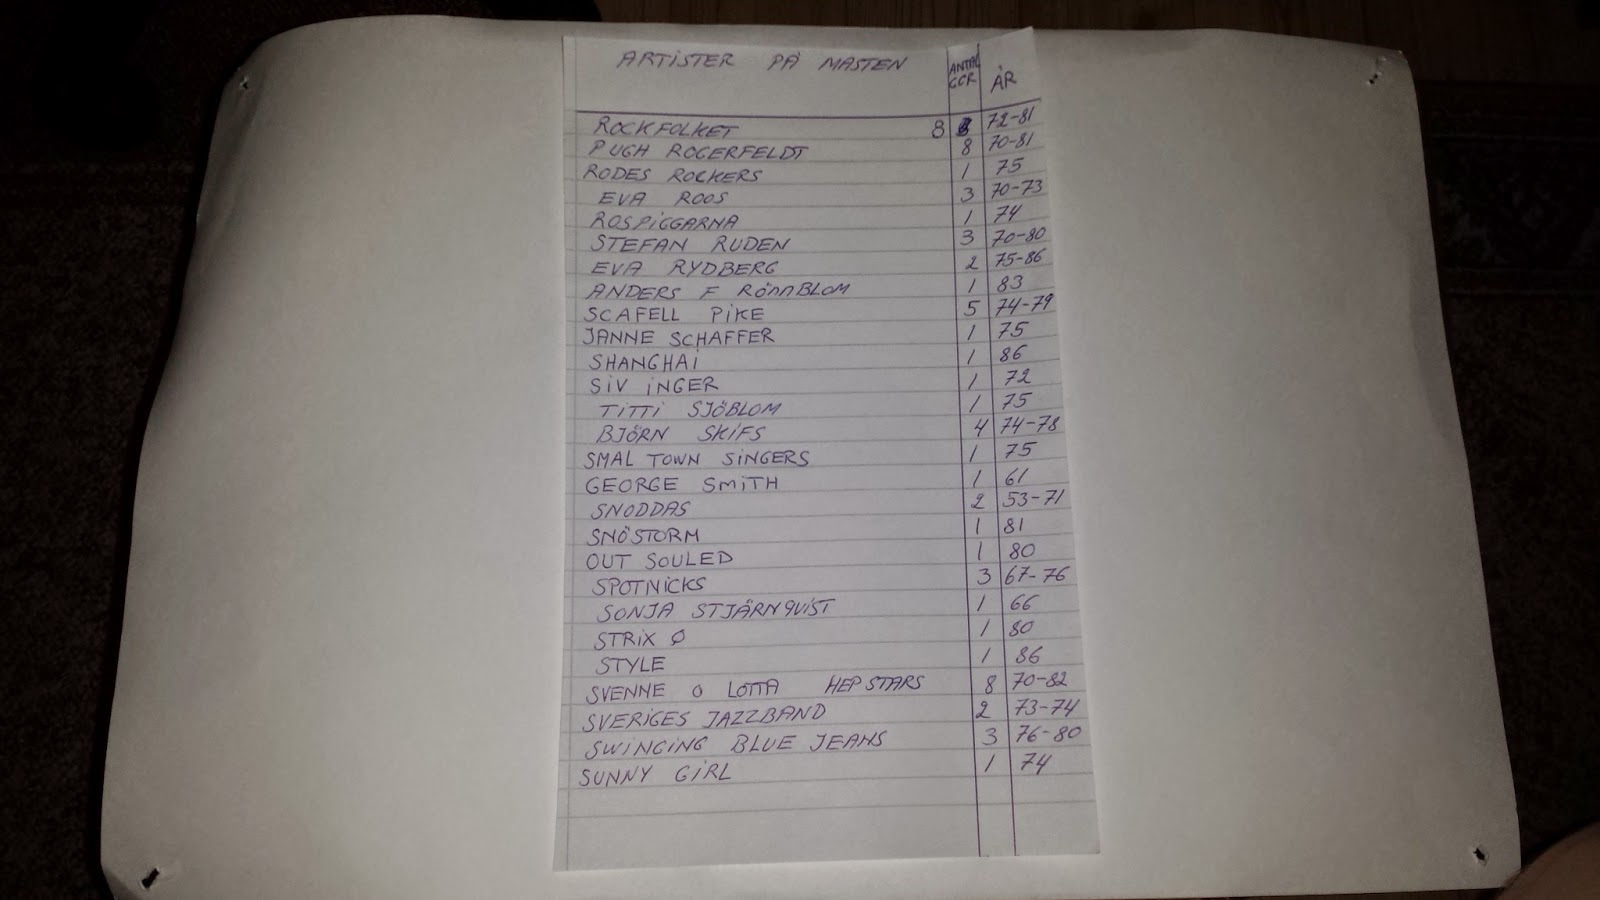 ARTISTER PÅ MASTEN ANTAL GGR ÅR
ROCKFOLKET 8 8 72-81
PUGH ROGERFELDT 8 70-81
RODES ROCKERS 1 75
EVA ROOS 3 70-73
ROSPIGGARNA 1 74
STEFAN RUDEN 3 70-80
EVA RYDBERG 2 75-86
ANDERS F RÖNNBLOM 1 83
SCAFELL PIKE 5 74-79
JANNE SCHAFFER 1 75
SHANGHAI 1 86
SIV INGER 1 72
TITTI SJÖBLOM 1 75
BJÖRN SKIFS 4 74-78
SMAL TOWN SINGERS 1 75
GEORGE SMITH 1 61
SNODDAS 2 53-71
SNÖSTORM 1 81
OUT SOULED 1 80
SPOTNICKS 3 67-76
SONJA STJÄRNQVIST 1 66
STRIX Q 1 80
STYLE 1 86
SVENNE O LOTTA HEPSTARS 8 70-82
SVERIGES JAZZBAND 2 73-74
SWINGING BLUE JEANS 3 76-80
SUNNY GIRL 1 74